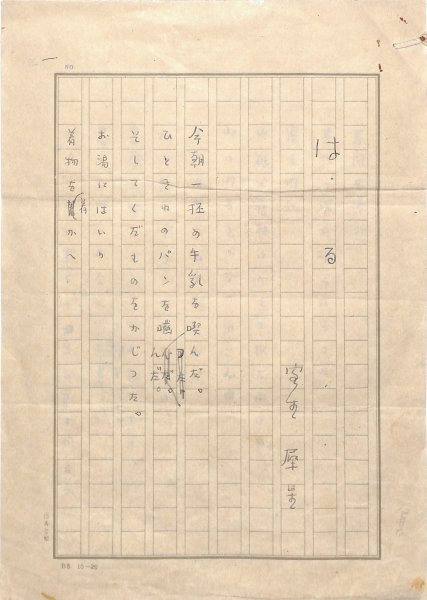 はる
室生犀星
今朝一杯の牛乳を喫んだ。
ひときれのパンを嚥んだ。
そしてくだものをかじつた。
お湯にはいり
着物を着かへ
NO
B5 10—20